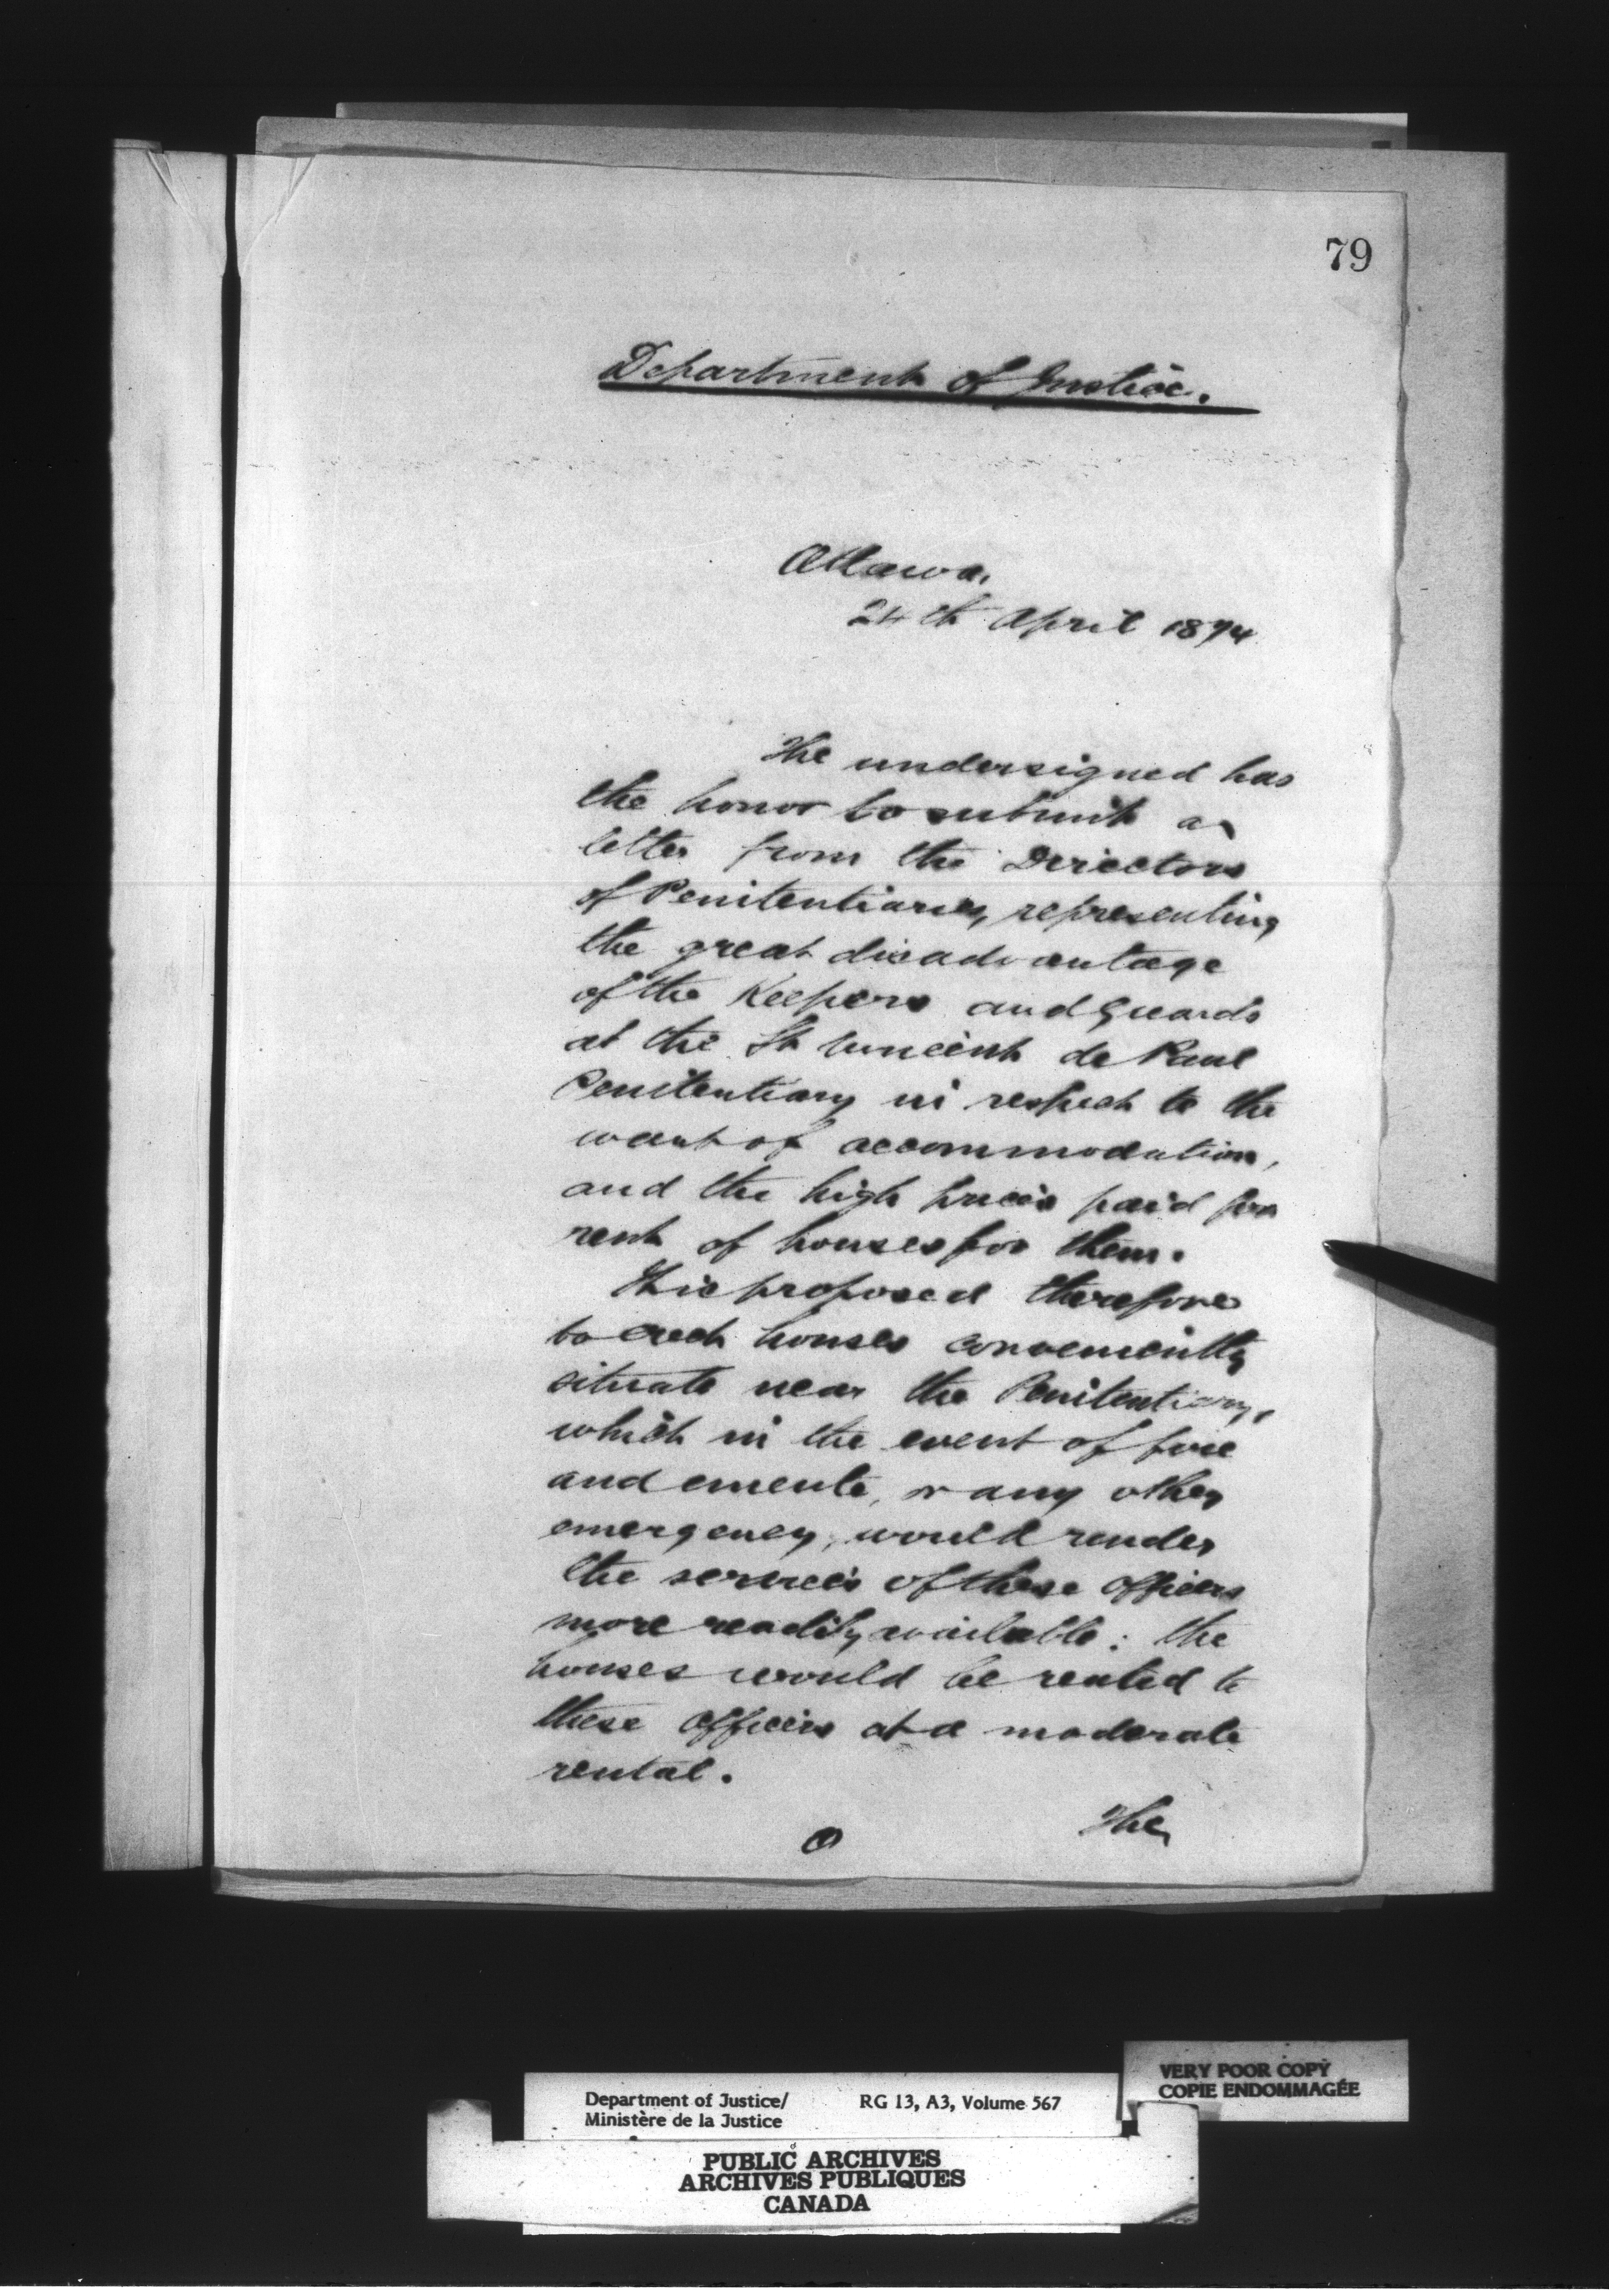 79
Department of Justice.
Ottawa,
24th April 1874
The undersigned has
the honor to submit a
letter from the Directors
of Penitentiaries, representing
the great disadvantage
of the Keepers and Guards
at the St Vincent de Paul
Penitentiary in respect to the
want of accommodation,
and the high prices paid for
rent of houses for them.
It is proposed therefore
to erect houses conveniently
situate near the Penitentiary,
which in the event of fire
and emeute, or any other
emergency, would render
the services of these officers
more readily available: the
houses would be rented to
these officers at a moderate
rental.
The
Department of Justice/
Ministère de la Justice
RG 13, A3, Volume 567
VERY POOR COPY
COPIE ENDOMMAGÉE
PUBLIC ARCHIVES
ARCHIVES PUBLIQUES
CANADA